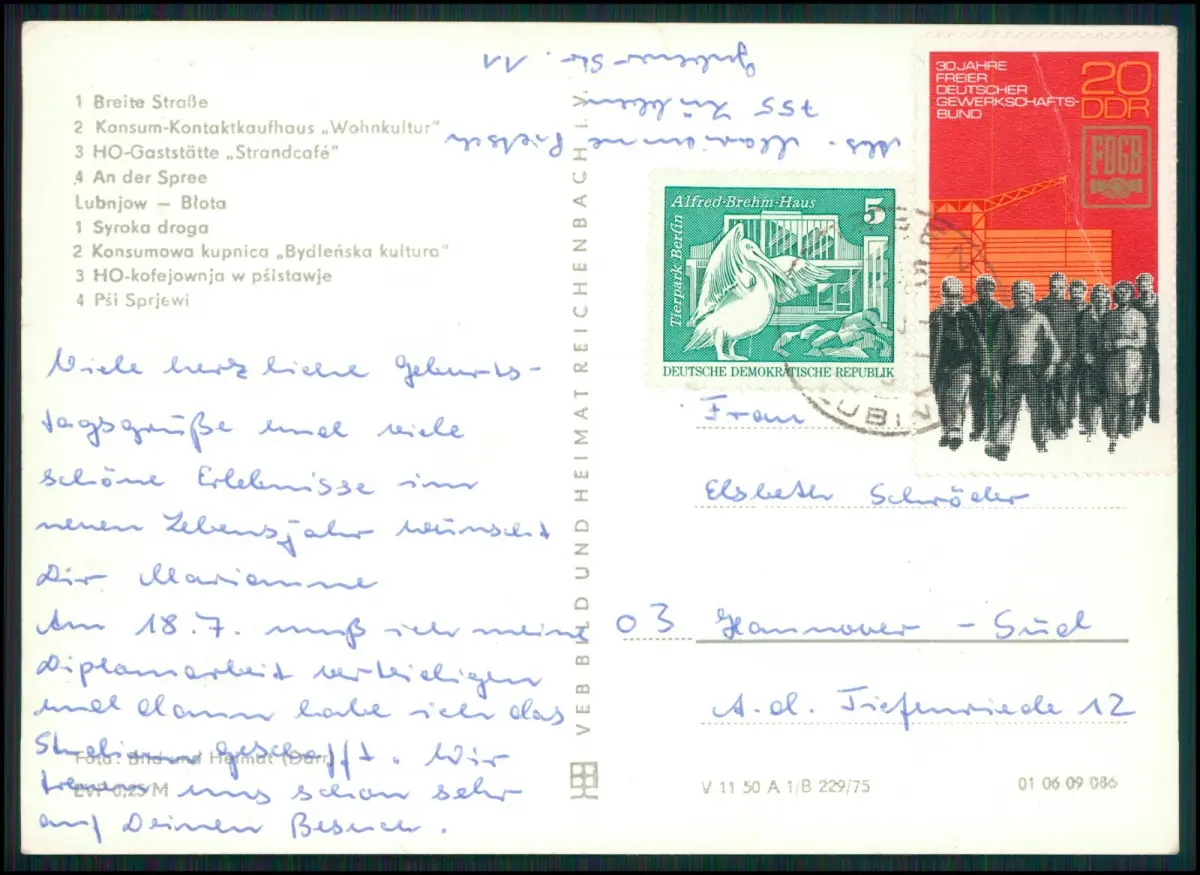 1 Breite Straße
2 Konsum-Kontaktkaufhaus „Wohnkultur"
3 HO-Gaststätte „Strandcafé"
4 An der Spree
Lubnjow – Błota
1 Syroka droga
2 Konsumowa kupnica „Bydleńska kultura"
3 HO-kofejownja w pśistawje
4 Pśi Sprjewi
Viele herzliche Geburts-
tagsgrüße und viele
schöne Erlebnisse im
neuen Lebensjahr wünscht
Dir Marianne
Am 18.7. muß ich meine
Diplomarbeit verteidigen
und dann habe ich das
Studium geschafft. Wir
freuen uns schon sehr
auf Deinen Besuch.
Foto: Bild und Heimat (Darr)
EVP 0,25 M
VEB BILD UND HEIMAT REICHENBACH i. V.
Abs. Marianne
755 Lübben
Gubener Str. 11
Alfred-Brehm-Haus
5
Tierpark Berlin
DEUTSCHE DEMOKRATISCHE REPUBLIK
30 JAHRE
FREIER
DEUTSCHER
GEWERKSCHAFTS-
BUND
20
DDR
FDGB
Frau
Elsbeth Schröder
03 Hannover - Süd
A.d. Tiefenriede 12
V 11 50 A 1/B 229/75
01 06 09 086